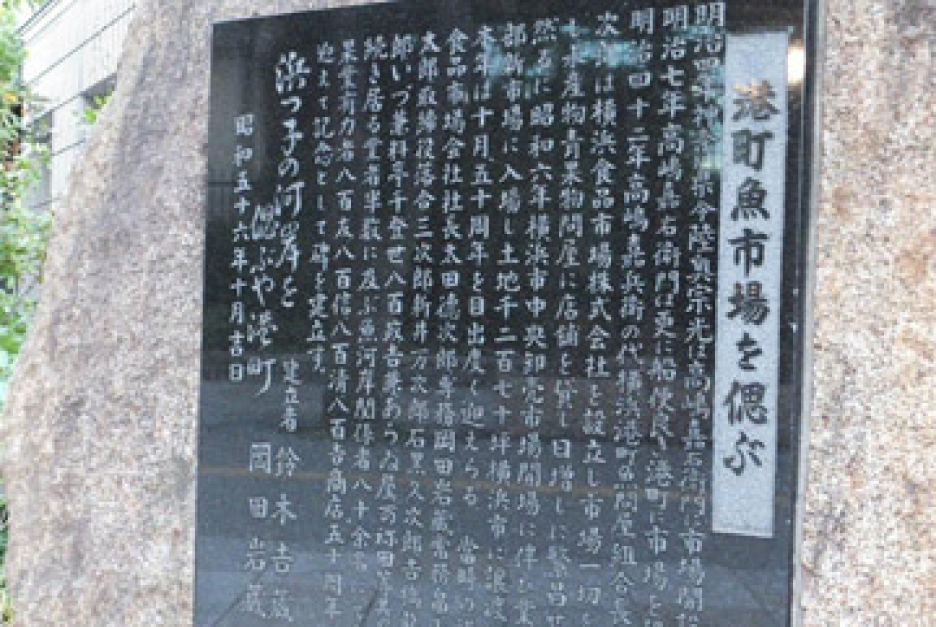 港町魚市場を偲ぶ
明治四年神奈川県令陸奥宗光は高嶋嘉右衛門に市場開設
明治七年高嶋嘉右衛門は更に船便良き港町に市場を
明治四十二年高嶋嘉兵衛の代横浜港町魚問屋組合長
次郎は横浜食品市場株式会社を設立し市場一切を
水産物青果物問屋に店舗を貸し日増しに繁昌せ
然るに昭和六年横浜市中央卸売市場開場に伴ひ業
部新市場に入場し土地千二百七十坪横浜市に譲渡
本年は十月五十周年を目出度く迎えらる 当時の
食品市場会社社長太田徳次郎専務岡田岩蔵常務
太郎取締役落合三次郎新井万次郎石黒久次郎吉橋
郎いづ薬料亭千登世八百政吉兼あらゐ屋
続き居る営者半数に及ぶ魚河岸関係者八十余名
果業有力者八百友八百信八百清八百吉商店五十周年
迎えて記念として碑を建立す。
浜っ子の河岸を
偲ぶや港町
建立者 鈴木吉蔵
岡田岩蔵
昭和五十六年十月吉日